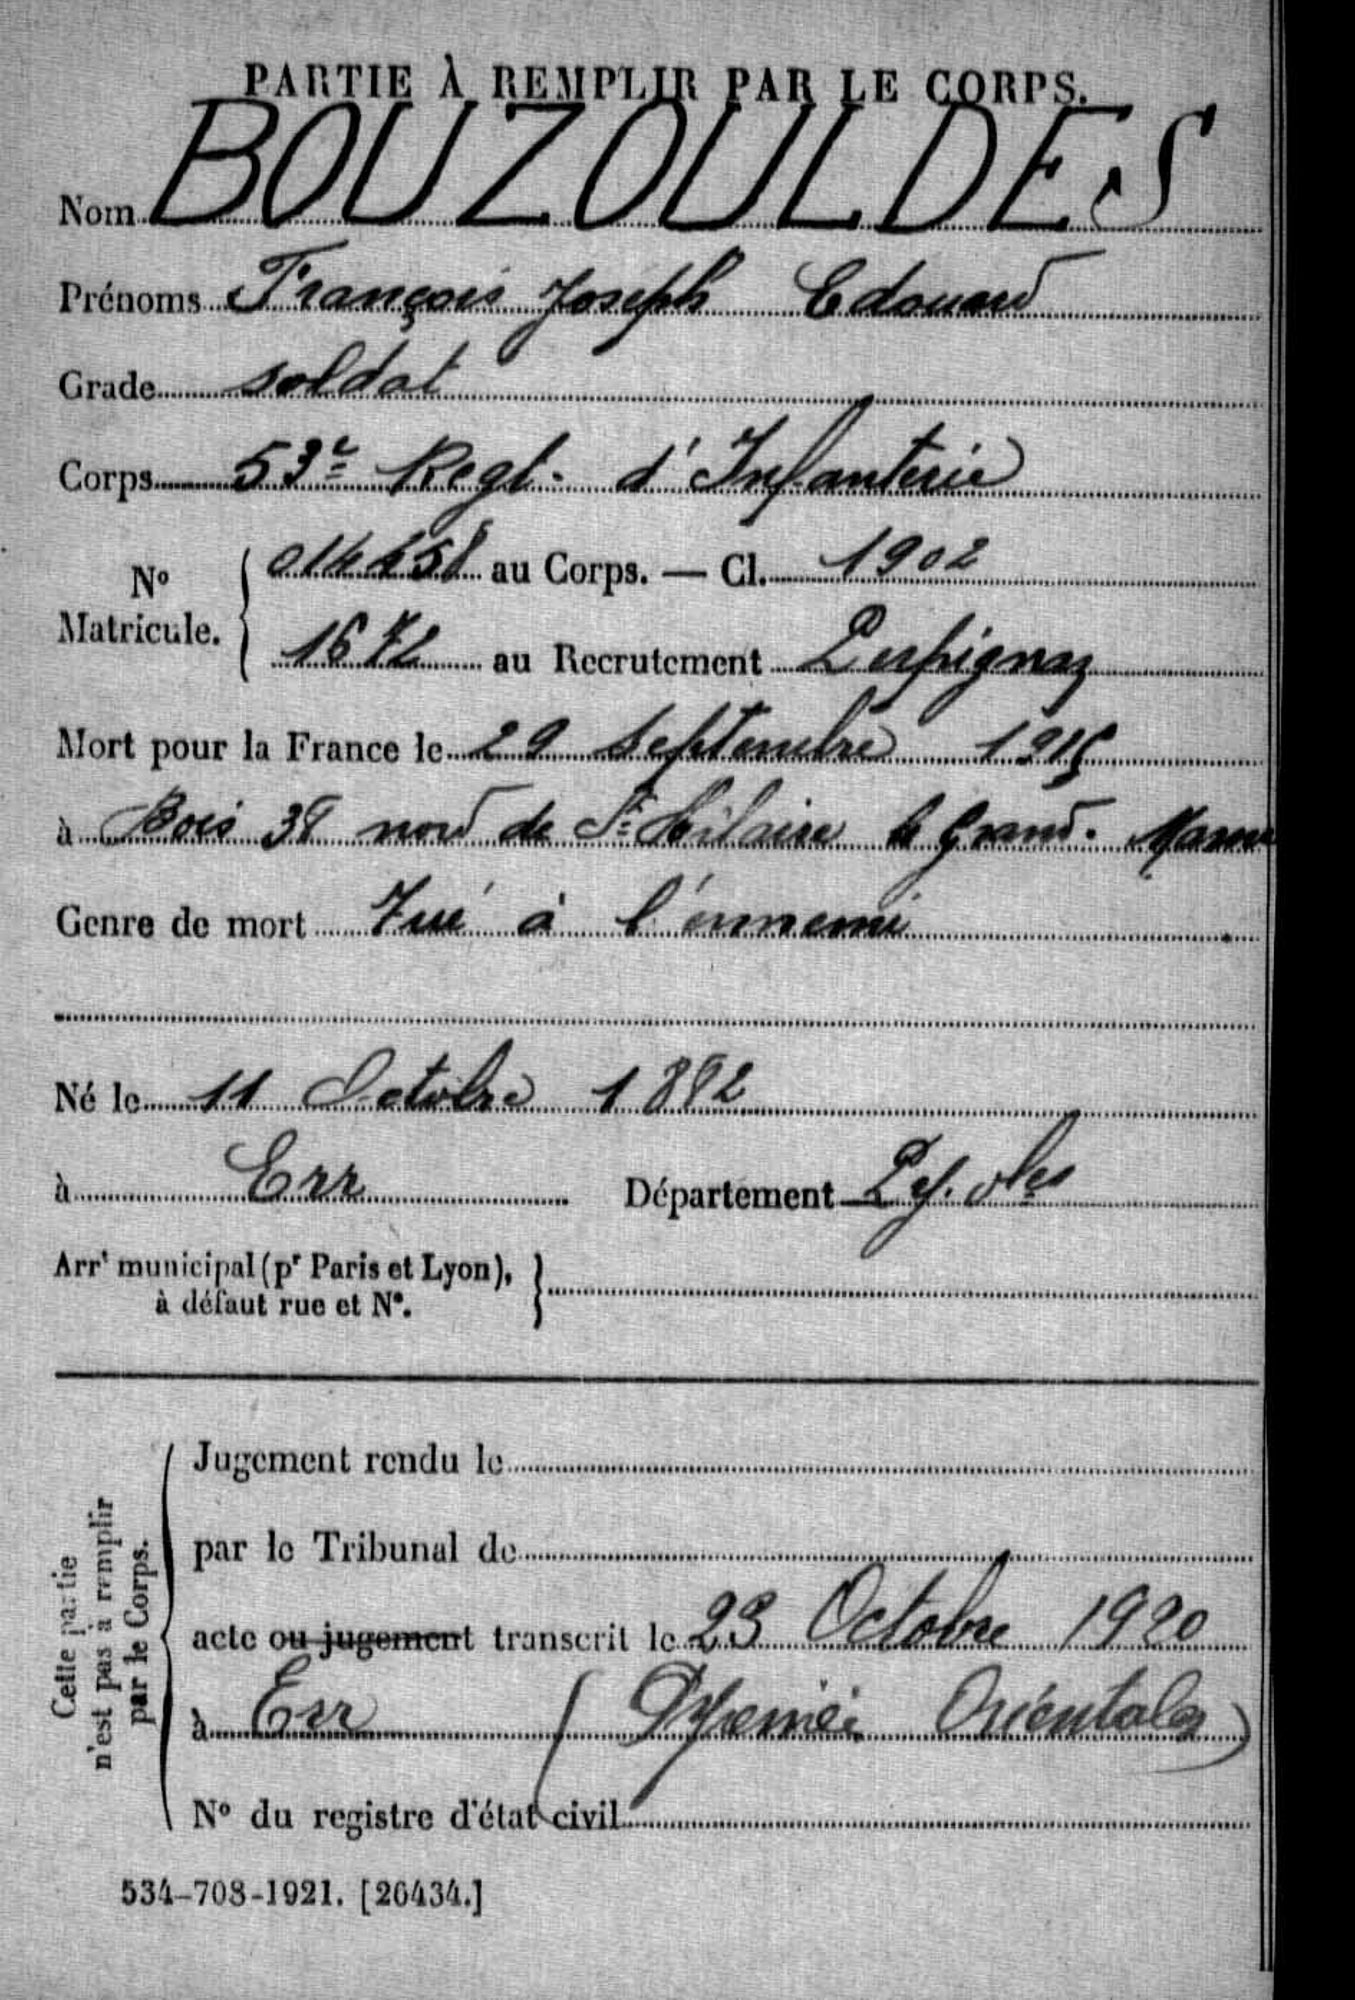 PARTIE À REMPLIR PAR LE CORPS.
Nom BOUZOULDES
Prénoms François Joseph Edouard
Grade soldat
Corps 53e Regt. d'Infanterie
No Matricule. { 014458 au Corps. — Cl. 1902
1672 au Recrutement Perpignan
Mort pour la France le 29 Septembre 1915
à Bois 38 nord de St Hilaire le Grand. Marne
Genre de mort Tué à l'ennemi
Né le 11 Octobre 1882
à Err Département Py. Oles
Arrt municipal (pr Paris et Lyon),
à défaut rue et No.
Cette partie
n'est pas à remplir
par le Corps.
Jugement rendu le
par le Tribunal de
acte ou jugement transcrit le 23 Octobre 1920
à Err (Pyrénées Orientales)
No du registre d'état civil
534-708-1921. [26434.]